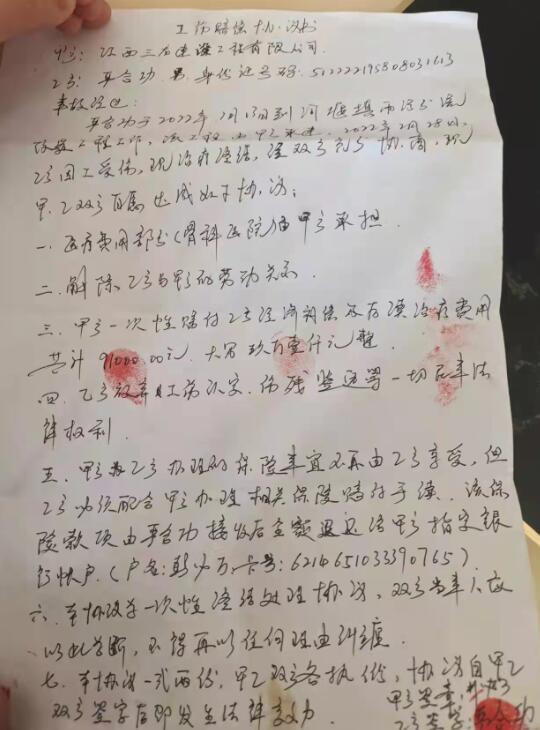 工伤赔偿协议书
甲方:江西三石建设工程有限公司.
乙方:尹合功.男.身份证号码:512222195808031613
事故经过:
尹合功于2022年2月13日到河堰镇雨污分流
改造工程工作,该工程由甲方承建.2022年2月28日,
乙方因工受伤,现治疗终结,经双方充分协商,现
甲.乙双方自愿达成如下协议:
一.医疗费用部分(骨科医院)由甲方承担.
二.解除乙方与甲方的劳动关系.
三.甲方一次性赔付乙方经济补偿及后续治疗费用
共计91000.00元.大写玖万壹仟元整.
四.乙方放弃工伤认定.伤残鉴定等一切后事法
律权利.
五.甲方为乙方办理的保险事宜不再由乙方享受,但
乙方必须配合甲方办理相关保险赔付手续.该保
险款项由尹合功接收后全额退还给甲方指定银
行帐户.(户名:,卡号:6214651033390765).
六.本协议为一次性终结处理协议,双方当事人应
以此为断,不得再以任何理由纠缠.
七.本协议一式两份,甲乙双方各执一份,协议自甲乙
双方签字后即发生法律效力.
甲方签章:
乙方签字:尹合功